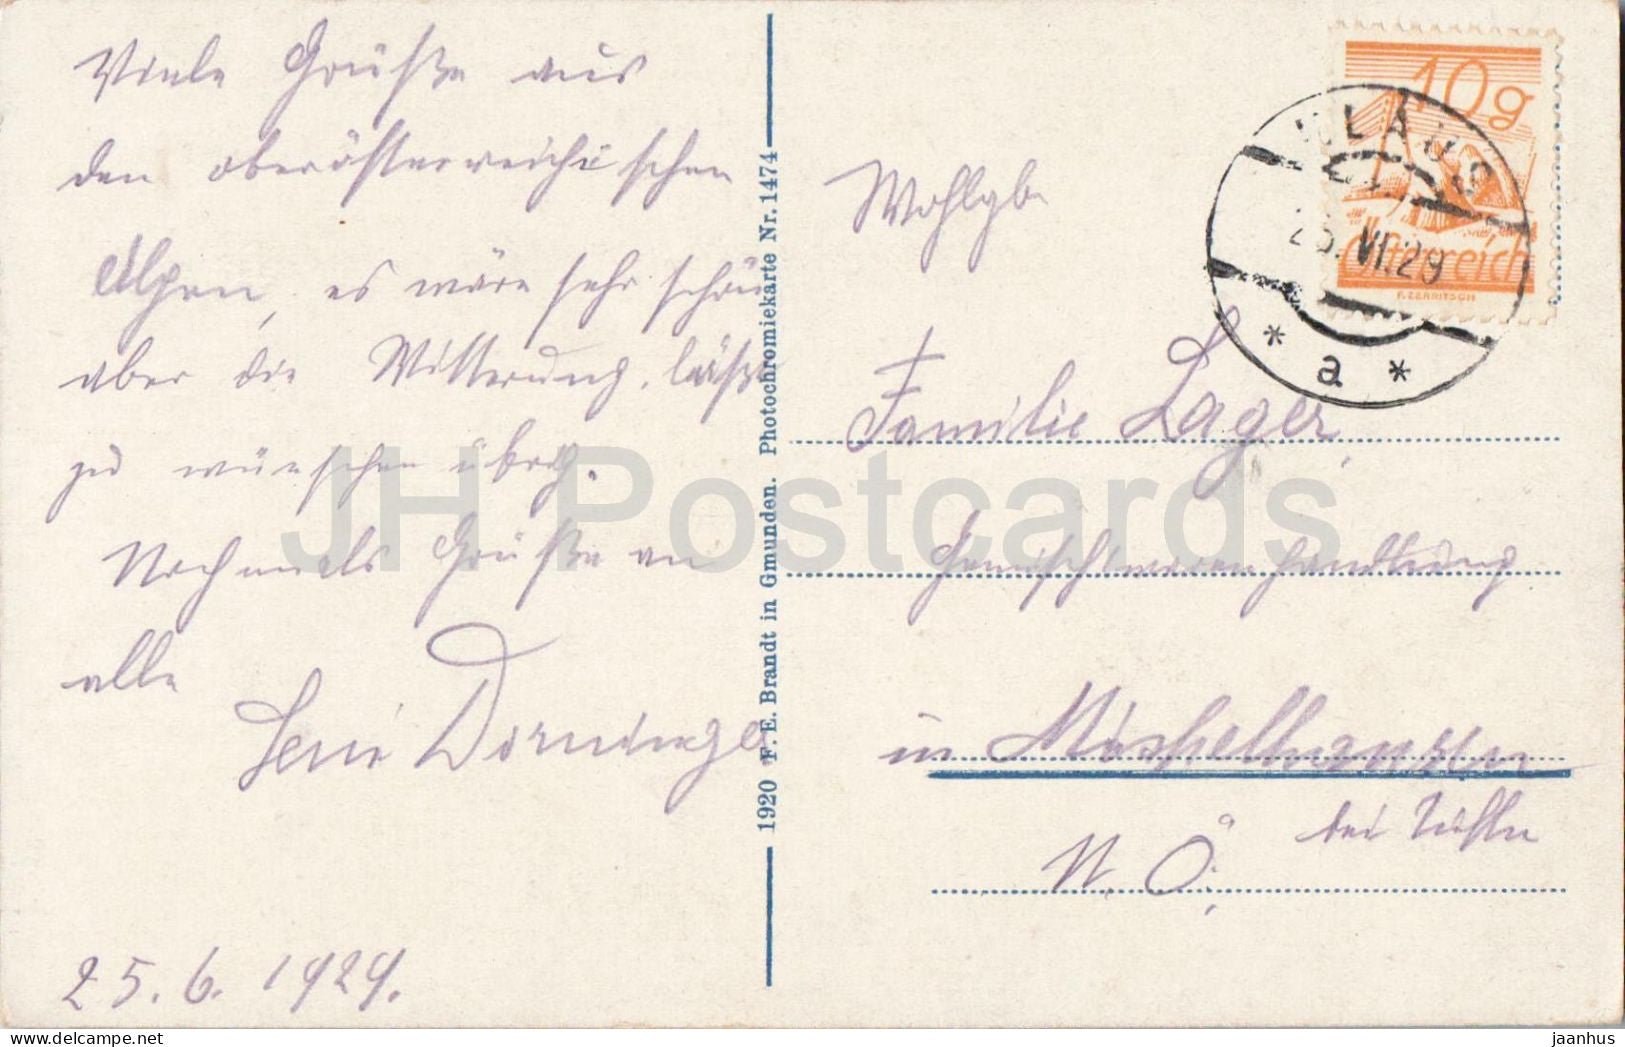 Viele Grüße aus
den oberösterreichischen
Alpen, es wäre sehr schön
aber die Witterung läßt
zu wünschen übrig.
Nochmals Grüße an
alle
Leni Dorninger
25.6.1929.
1920 F. E. Brandt in Gmunden. Photochromiekarte Nr. 1474
10g
Österreich
F. ZERRITSCH
KLAUS
VI.29
*a*
Wohlgb.
Familie Lager,
Gemischtwarenhandlung
in
bei
N. Ö.
JH Postcards
jaanhus